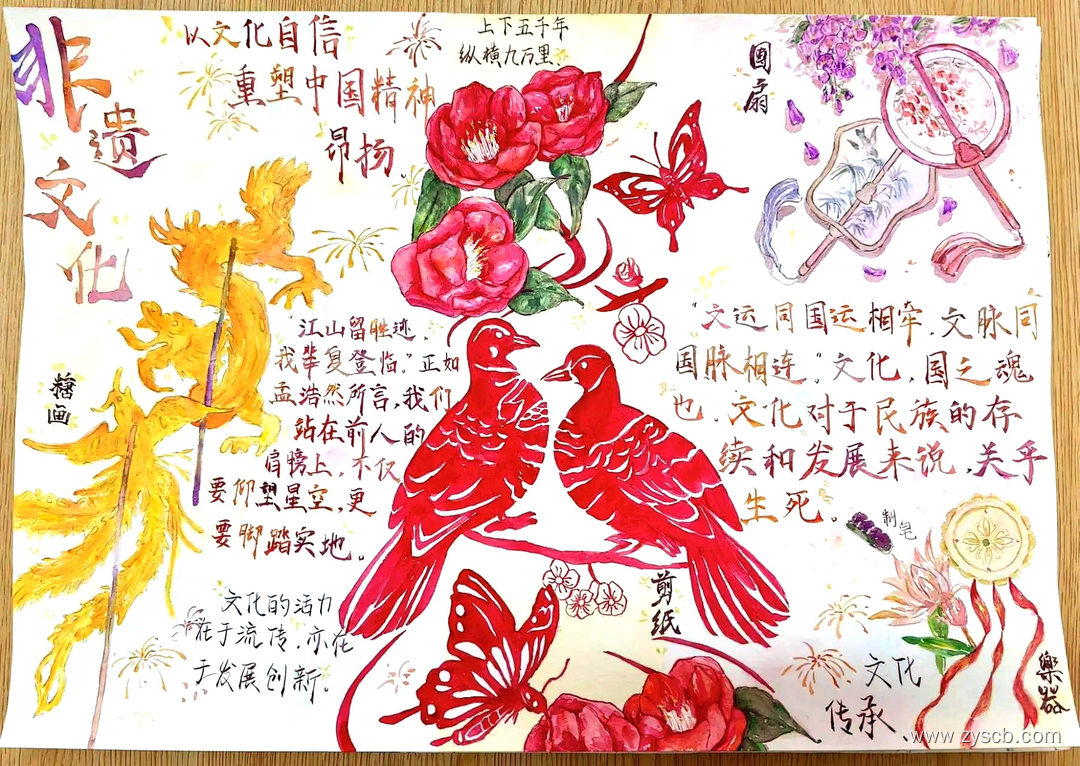 非
遗
文
化
以文化自信
重塑中国精神
昂扬.
上下五千年
纵横九万里.
团扇
糖画
"江山留胜迹,
我辈复登临."正如
孟浩然所言,我们
站在前人的
肩膀上,不仅
要仰望星空,更
要脚踏实地。
文化的活力
在于流传,亦在
于发展创新。
"文运同国运相牵,文脉同
国脉相连."文化,国之魂
也.文化对于民族的存
续和发展来说,关乎
生死。
制皂
剪纸
樂器
文化
传承、
www.zyscb.com